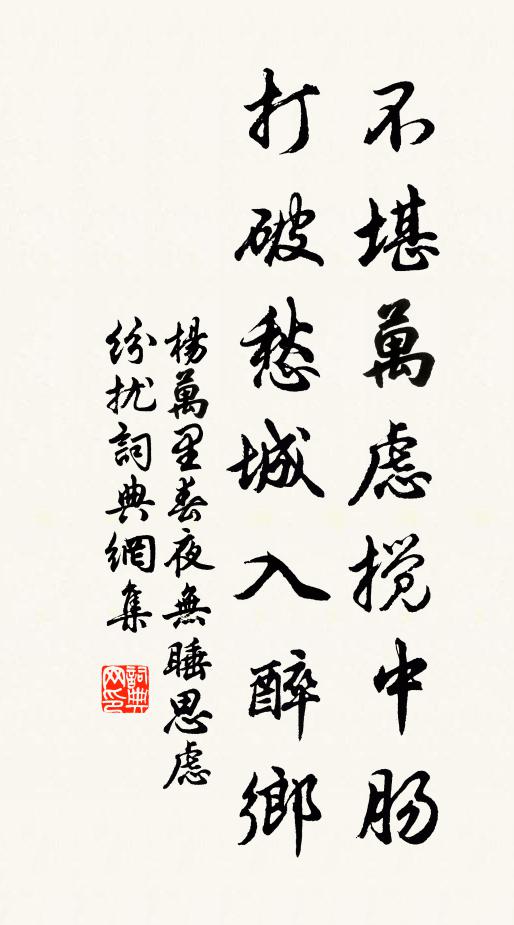 不堪萬慮搅中肠
打破愁城入醉鄉
楊萬里春夜無睡思慮
纷扰詞典網集
詞典
网印